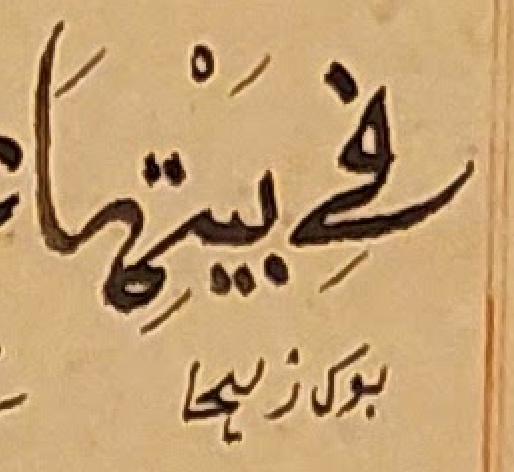 فِي بَيْتِهَا
بوک زلیحا